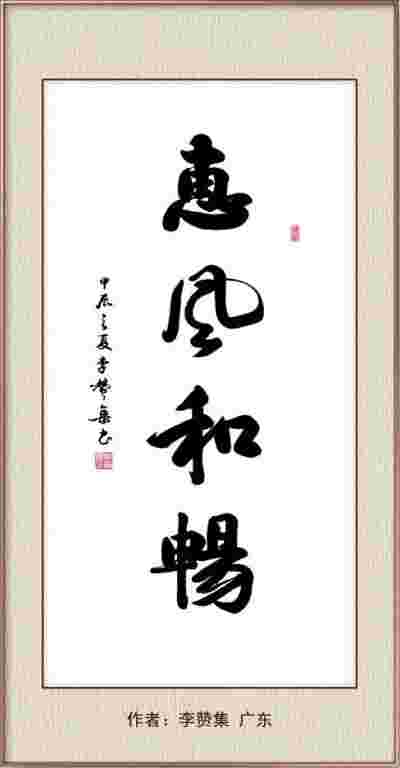 惠風和暢
甲辰之夏李赞集书
作者：李赞集 广东